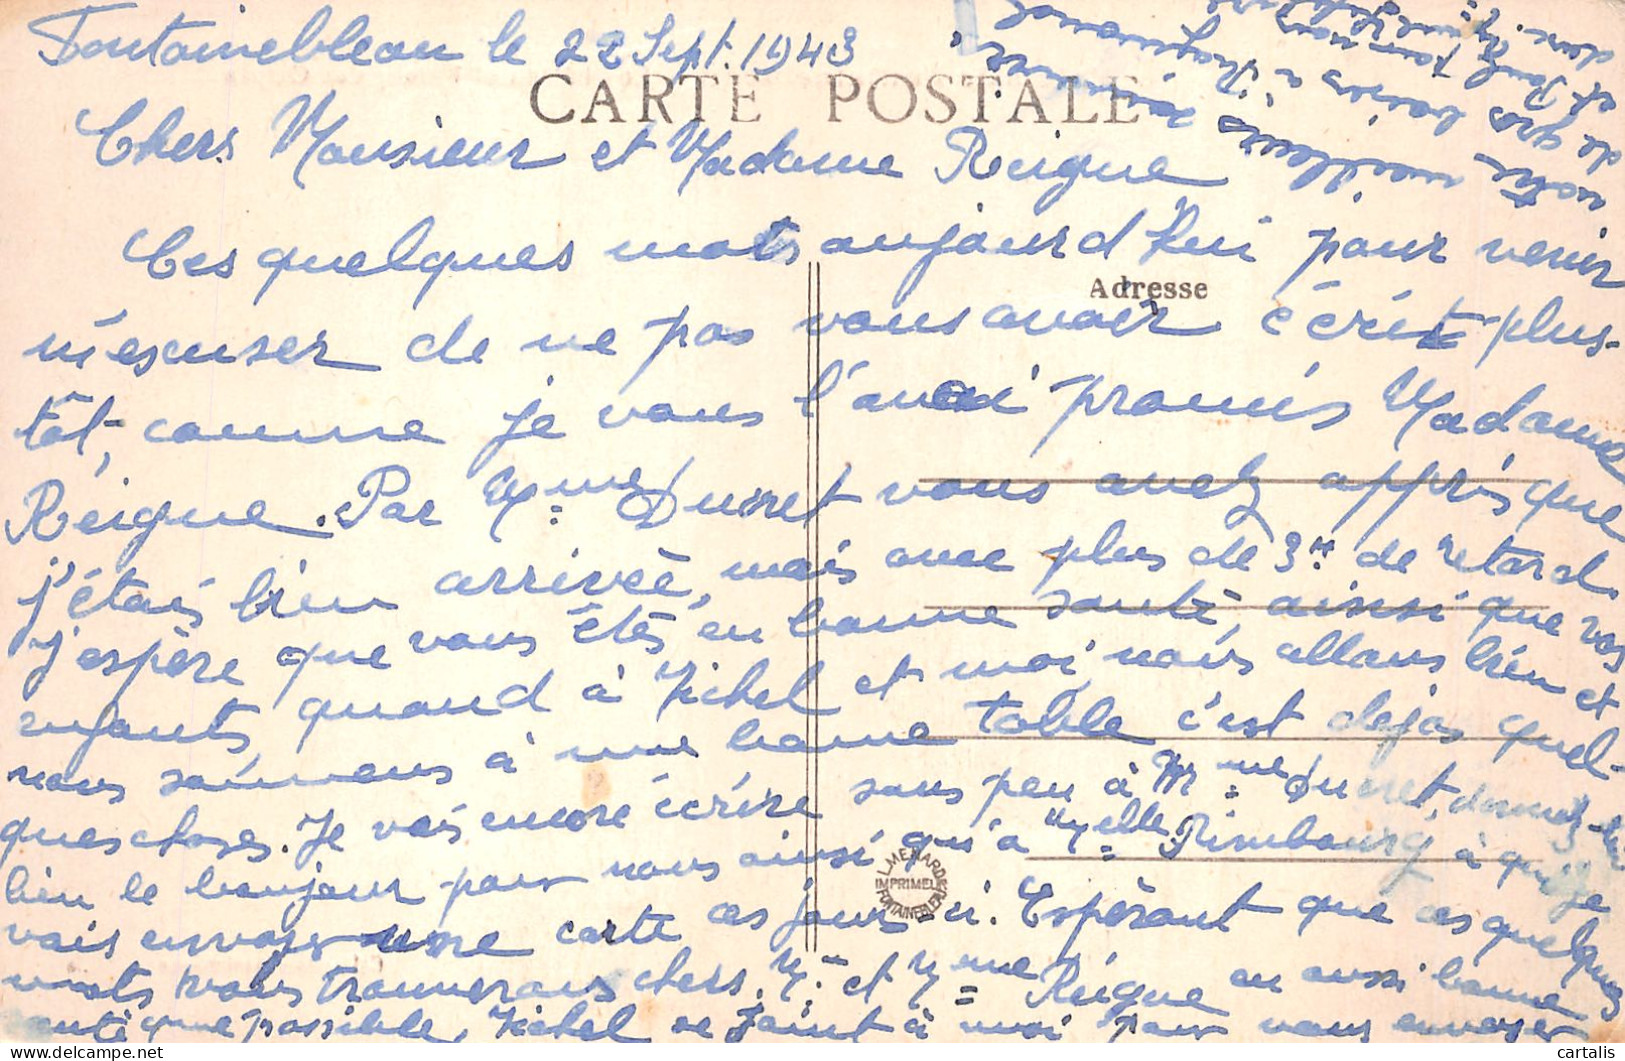 Fontainebleau le 22 Sept. 1943
CARTE POSTALE
Chers Monsieur et Madame Reigne
Ces quelques mots aujourd'hui pour venir
Adresse
m'éscuser de ne pas vous avoir écrit plus-
tôt, comme je vous l'avai promis Madame
Reigne. Par Mme Ducret vous avez appris que
j'étais bien arrivée, mais avec plus de 3H de retard.
J'espère que vous êtes en bonne santé, ainsi que vos
enfants, quand à Michel et moi, nous allons bien et
nous sommes à une bonne table c'est dejas quel-
ques choses. Je vais encore écrire sous peu à Mme Ducret, donnez-lui
bien le bonjour pour nous ainsi qu'a Melle Rimbourg à qui je
vais envoyer une carte ces jour-ci. Espérant que ces quelques
mots vous trouverons chers Mr et Mme Reigne en aussi bonne
santé que possible, Michel se joint à moi pour vous envoyer
notre meilleurs
de gros baisers a
et Paul
L. MENARD
IMPRIMEUR
FONTAINEBLEAU
cartalis